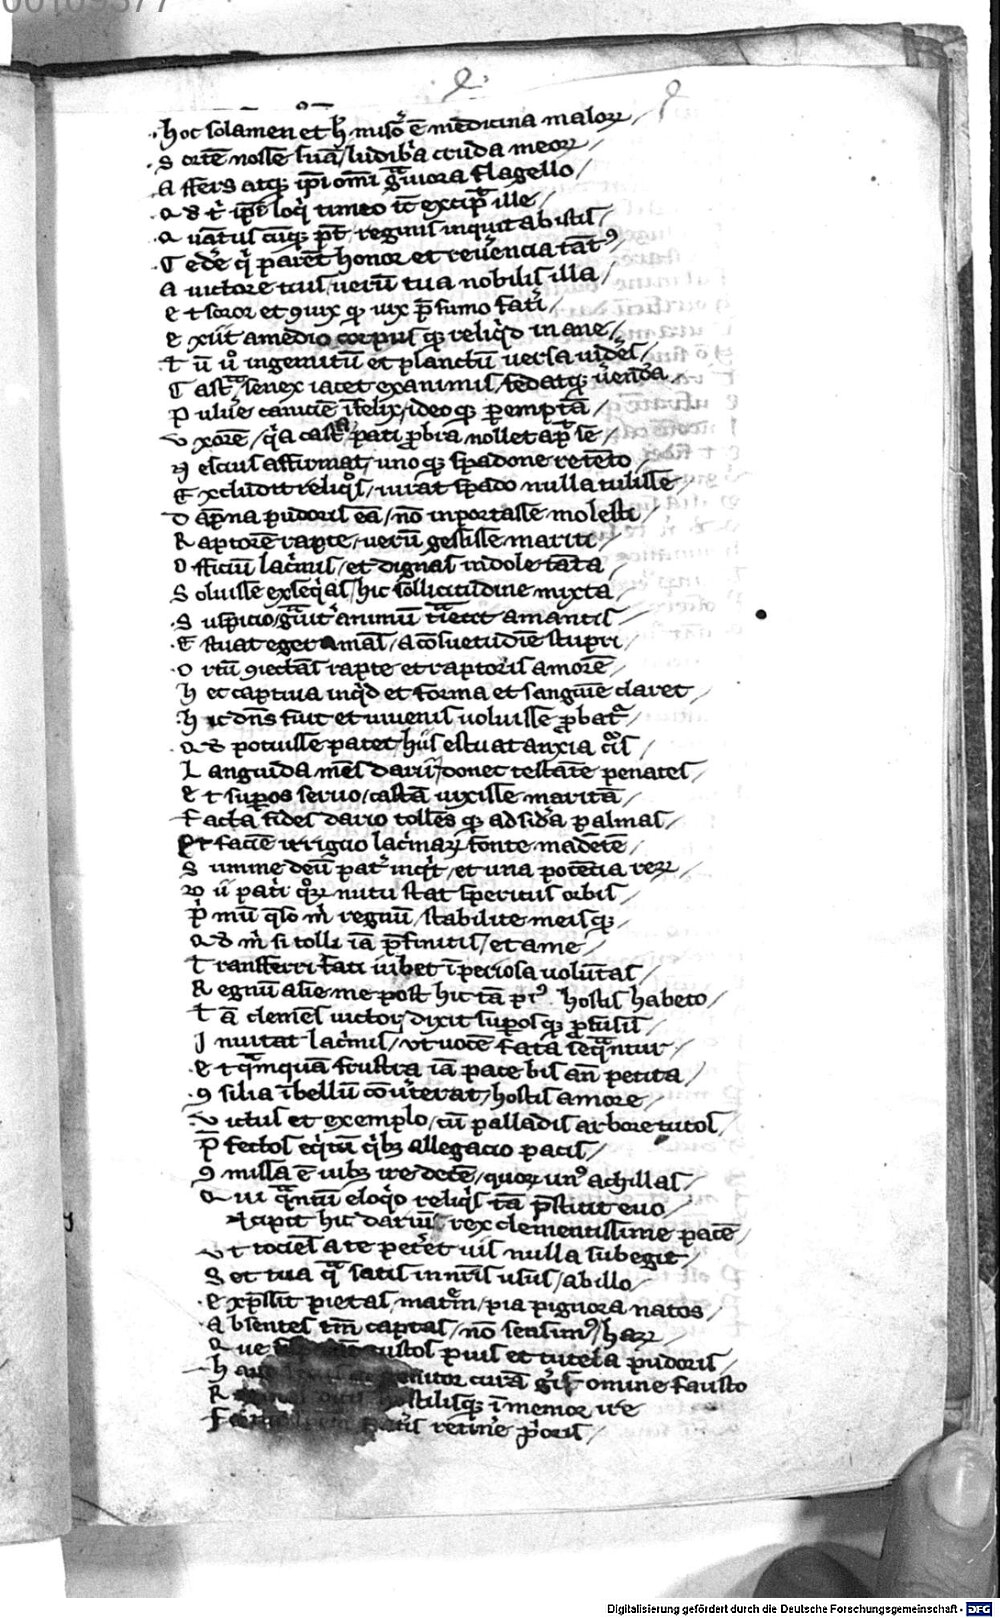 00109377
hoc solamen et h̄ mis̄o ē medicina maloꝝ /
S ortē nosse suā / ludibͣa cruda meoꝝ /
A ffers atqꝫ ip̄i om̄i gͣuiora flagello /
Q d tͥ ip̄e loqͥ timeo īc excipͭ ille /
Q uātus cūqꝫ p̄t / reginis inquit ab istis /
C edē qͥ parēt honor et reuēencia tātꝰ
A uictore tuis / uerū tua nobilis illa /
E t soror et ꝯiux qꝫ uix p̄sumo fatͥ /
E xiit a medio corpus qꝫ reliqͥd inane /
T ū uͦ ingemitū et planctū uersa uidēs /
C astͣ senex iacet exanimis / fedatqꝫ uēenda
P uluēe caniciē īfelix / ideo qꝫ pemptā /
V xorē / qͥa castͣ pati pͦbra nollet ap̄ se /
N escius affirmat / uno qꝫ spadone retēto /
E xcludit reliqͦs / iurat spado nulla tulisse /
D āpna pudoris eā / nō inportasse molesti /
R aptorē rapte / uerū gessisse mariti /
O fficiū lacͥmis / et dignas indole tāta /
S oluisse exseqͥas / hic sollicitudine mixta /
S uspicio / gͣuit animū t̄rētt amantis /
E stuat eger amās / a cōsuetudīe stupri /
O rtū ꝯiectās rapte et raptoris amorē /
H ec captiua inqͥd et forma et sanguīe claret /
H ic dn̄s fuit et iuuenis uoluisse ꝓbatͬ /
Q d potuisse patet hiis estuat anxia cͥis /
L anguida mēs darii / donec testāte penates /
E t supos seruo / castā uixisse maritā /
F acta fides dario tollēs qꝫ ad sidͣa palmas /
Et faciē irriguo lacͥmaꝝ fonte madētē /
S umme deū patͬ inqͥt / et una potētia reꝝ /
V ū patͥ qͦꝝ nutu stat speritus orbis /
P̄ mū qͣso mͥ regnū / stabilite meisqꝫ /
Q d mͥ si tolli iā p̄finitis / et a me /
T ransferri fati iubet īperiosa uolūtas /
R egnū asie me post hic tā piꝰ hostis habeto /
T ā clemēs uictor / dixit suposqꝫ ꝓfusis /
I nuitat lacͥmis / ut uocē fata seqͣntur /
E t qͣmquā frustra iā pace bis an̄ petita /
ꝯ silia ī bellū cōuterat / hostis amore /
V ictus et exemplo / cū palladis arbore tutos /
P̄ fectos eqͥtū qͥbꝫ allegacio pacis /
ꝯ missa ē iubꝫ ire decē / quoꝝ unꝰ achillas /
Q ui qͣntū eloqͥo reliqͥs tā p̄stitit euo /
Accipit hic darius rex clementissime pacē /
V t tociēs a te petēet uis nulla subegit /
S et tua qͣ satis in nr̄is usus / ab illo /
E xp̄ssit pietas / matͬm / pia pignora natos /
A bsentes tm̄ captas / nō sensimꝰ / haꝝ /
Q ue custos pius et tutela pudoris /
H nitor curā gͥs omine fausto
R stilisqꝫ īmemor ire
F tͥs retinēe pͥoris /
Digitalisierung gefördert durch die Deutsche Forschungsgemeinschaft - DFG